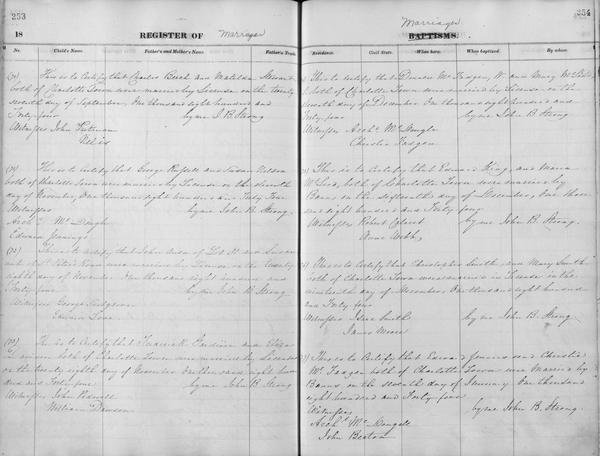 253
18
REGISTER OF Marriages
No.
Child's Name.
Father's and Mother's Name.
Father's Trade.
This is to Certify that Charles Birch and Matilda
both of Charlotte Town were married by License on the twenty
seventh day of September, One thousand eight hundred and
Forty four by me J. B. Strong
Witnesses John Putman
This is to Certify that George Russell and Susan Nelson
both of Charlotte Town were married by License on the eleventh
day of November One thousand eight hundred and Forty Four
Witnesses by me John B. Strong
Archd McDough
Edwin Jennings
This is to Certify that John of Lot and Susan
day of November One thousand eight hundred and
Forty four by me John B. Strong
Witnesses George
Edward Love
This is to Certify that Frederick and Eliza
both of Charlotte Town were married by License
on the twenty eighth day of November One thousand eight hundred
and Forty four by me John B. Strong
Witnesses John
William Dawson
254
Marriages
BAPTISMS.
Residence.
Civil State.
When born.
When baptized.
By whom.
This is to certify that and Mary
both of Charlotte Town were married by License on the
day of December One thousand eight hundred and
Forty four by me John B. Strong
Witnesses Archd McDougle
Christie Fadgen
This is to Certify that Edward King, and Maria
McLeod, both of Charlotte Town were married by
Banns on the day of December, One thou
sand eight hundred and Forty four
Witnesses Robert by me John B. Strong
Anne Webb,
This is to Certify that Christopher Smith and Mary Smith
both of Charlotte Town were married by License in the
nineteenth day of December, One thousand eight hundred
and Forty four
Witnesses Smith by me John B. Strong
James Moore
This is to Certify that Edward and Christie
McFadgen both of Charlotte Town were Married by
Banns on the seventh day of January One thousand
eight hundred and Forty four
Witnesses by me John B. Strong.
Archd McDougall
John Beaton